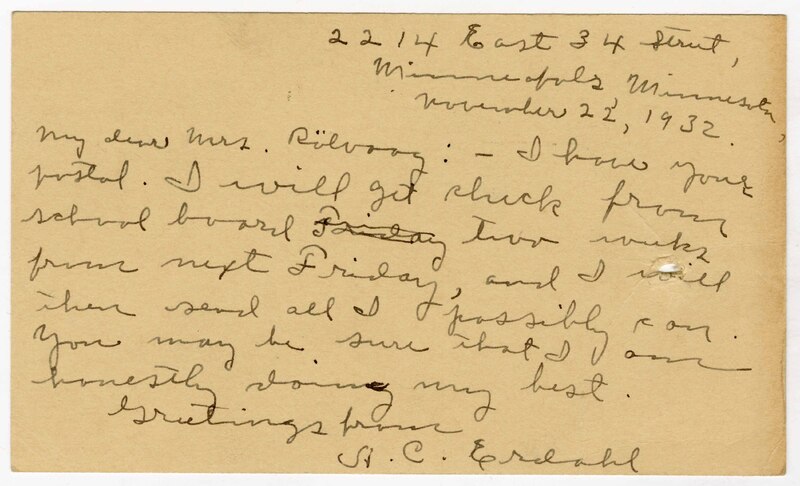 2214 East 34 Street,
Minneapolis, Minnesota,
November 22, 1932.
My dear Mrs. Rölvaag: - I have your
postal. I will get check from
school board Friday two weeks
from next Friday, and I will
then send all I possibly can.
You may be sure that I am
honestly doing my best.
Greetings from
A. C. Erdahl